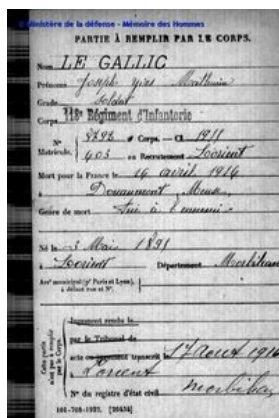 © Ministère de la défense - Mémoire des Hommes
PARTIE À REMPLIR PAR LE CORPS.
Nom LE GALLIC
Prénoms Joseph Yves Mathurin
Grade Soldat
Corps 118e Régiment d'Infanterie
N° 8792 au Corps. — Cl 1911
Matricule. 403 au Recrutement Lorient
Mort pour la France le 14 avril 1916
à Douaumont, Meuse
Genre de mort Tué à l'ennemi
Né le 3 Mai 1891
à Lorient Département Morbihan
Arrt municipal (pr Paris et Lyon),
à défaut rue et N°.
Cette partie
n'est pas à remplir
par le Corps.
Jugement rendu le
par le Tribunal de
acte ou jugement transcrit le 17 Aout 1916
à Lorient
Morbihan
N° du registre d'état civil
101-708-1922. [26434]